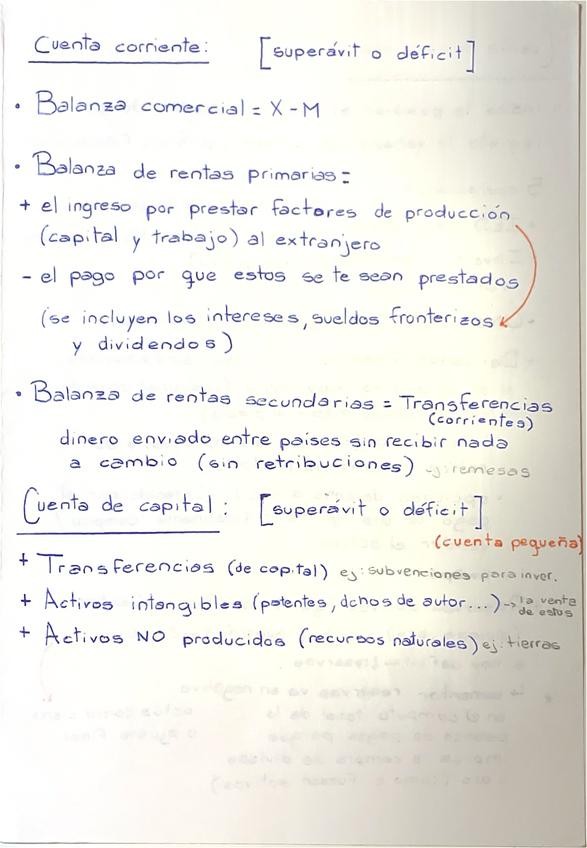 Cuenta corriente: [superávit o déficit]
• Balanza comercial = X - M
• Balanza de rentas primarias =
+ el ingreso por prestar factores de producción
(capital y trabajo) al extranjero
- el pago por que estos se te sean prestados
(se incluyen los intereses, sueldos fronterizos
y dividendos)
• Balanza de rentas secundarias = Transferencias
(corrientes)
dinero enviado entre países sin recibir nada
a cambio (sin retribuciones) ej: remesas
Cuenta de capital: [superávit o déficit]
(cuenta pequeña)
+ Transferencias (de capital) ej: subvenciones para inver.
+ Activos intangibles (patentes, dchos de autor...) -> la venta
de estos
+ Activos NO producidos (recursos naturales) ej: tierras